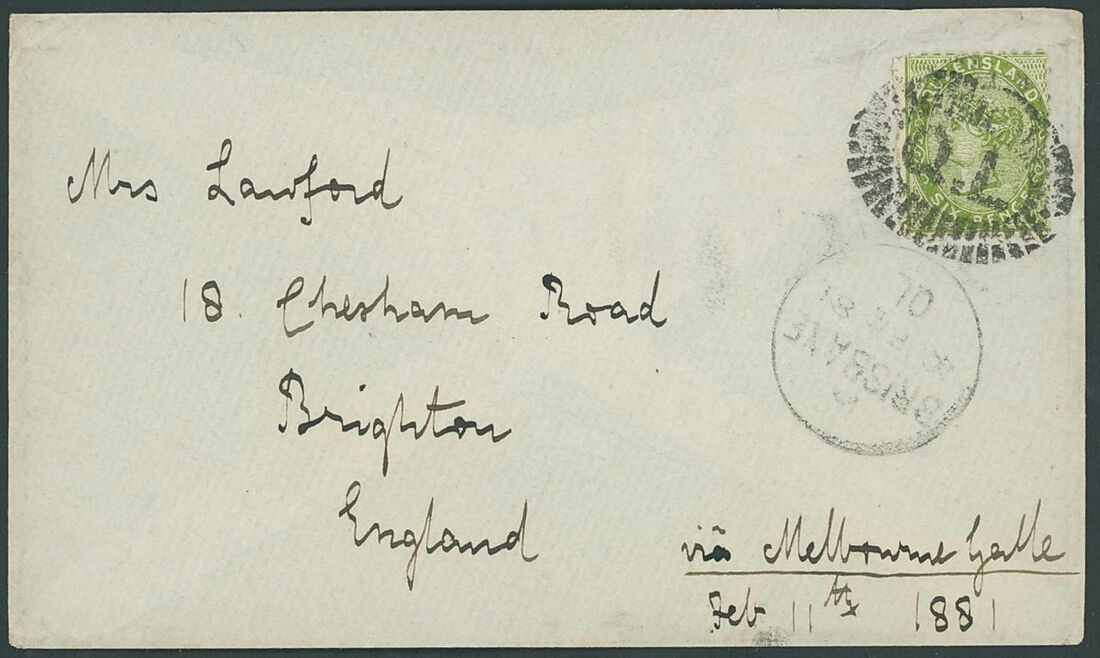 QUEENSLAND
SIX PENCE
Mrs Lawford
18. Chesham Road
Brighton
England
BRISBANE
FE
81
QL
viâ Melbourne Galle
Feb 11th 1881